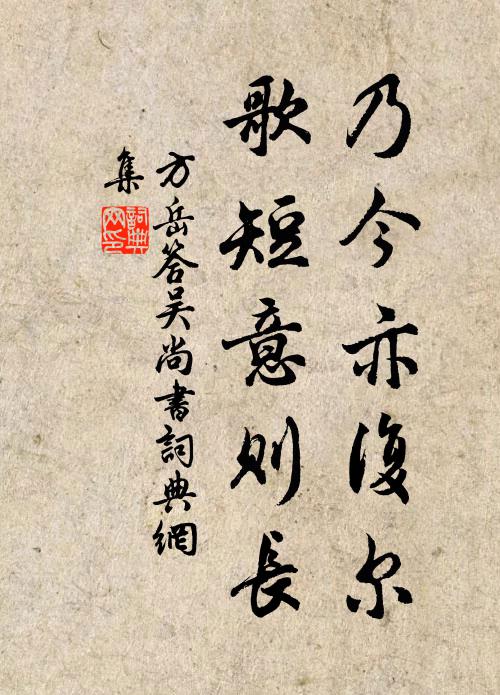 乃今亦復尔
歌短意則長
方岳答吴尚書詞典網
集
詞典
网印